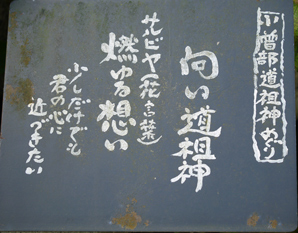 小曽部道祖神めぐり
向い道祖神
サルビヤ(花言葉)
燃ゆる想い
少しだけでも
君の心に
近づきたい